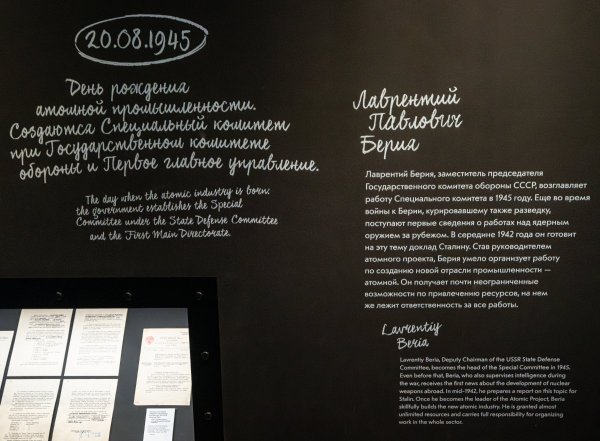 20.08.1945
День рождения
атомной промышленности.
Создаются Специальный комитет
при Государственном комитете
обороны и Первое главное управление.
The day when the atomic industry is born:
the government establishes the Special
Committee under the State Defense Committee
and the First Main Directorate.
Лаврентий
Павлович
Берия
Лаврентий Берия, заместитель председателя
Государственного комитета обороны СССР, возглавляет
работу Специального комитета в 1945 году. Еще во время
войны к Берии, курировавшему также разведку,
поступают первые сведения о работах над ядерным
оружием за рубежом. В середине 1942 года он готовит
на эту тему доклад Сталину. Став руководителем
атомного проекта, Берия умело организует работу
по созданию новой отрасли промышленности —
атомной. Он получает почти неограниченные
возможности по привлечению ресурсов, на нем
же лежит ответственность за все работы.
Lavrentiy
Beria
Lavrentiy Beria, Deputy Chairman of the USSR State Defense
Committee, becomes the head of the Special Committee in 1945.
Even before that, Beria, who also supervises intelligence during
the war, receives the first news about the development of nuclear
weapons abroad. In mid-1942, he prepares a report on this topic for
Stalin. Once he becomes the leader of the Atomic Project, Beria
skillfully builds the new atomic industry. He is granted almost
unlimited resources and carries full responsibility for organizing
work in the whole sector.